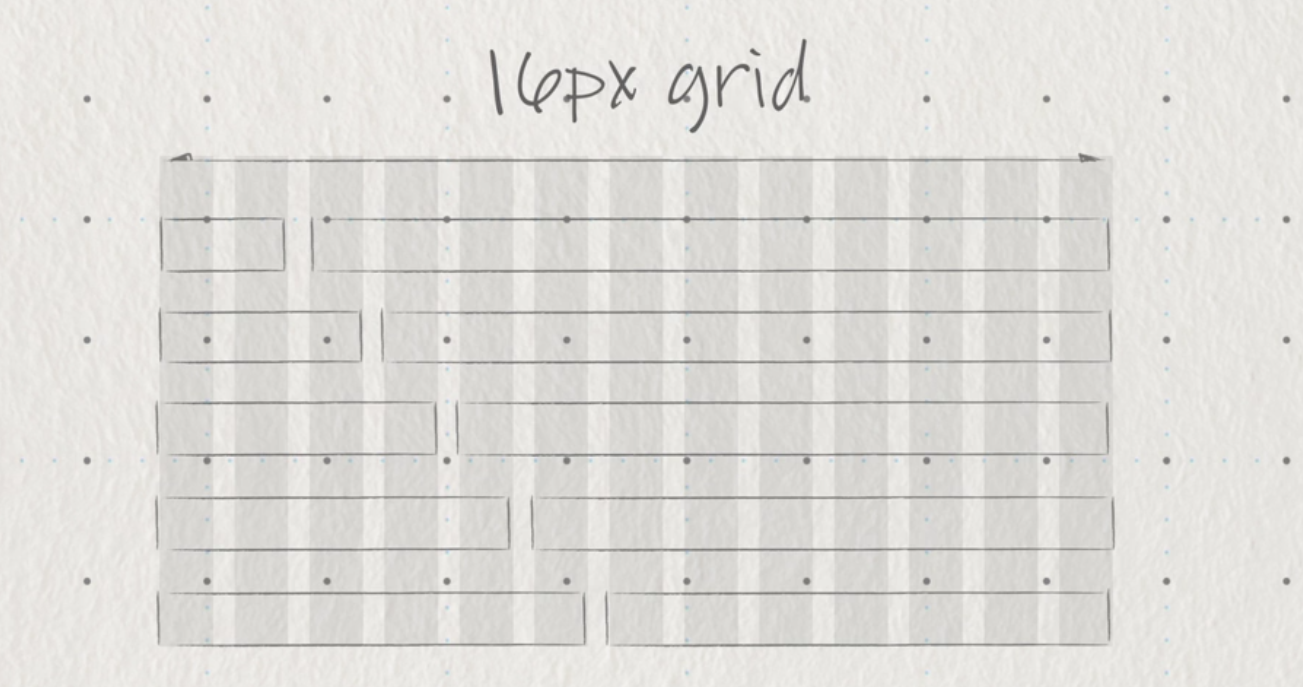 16px grid